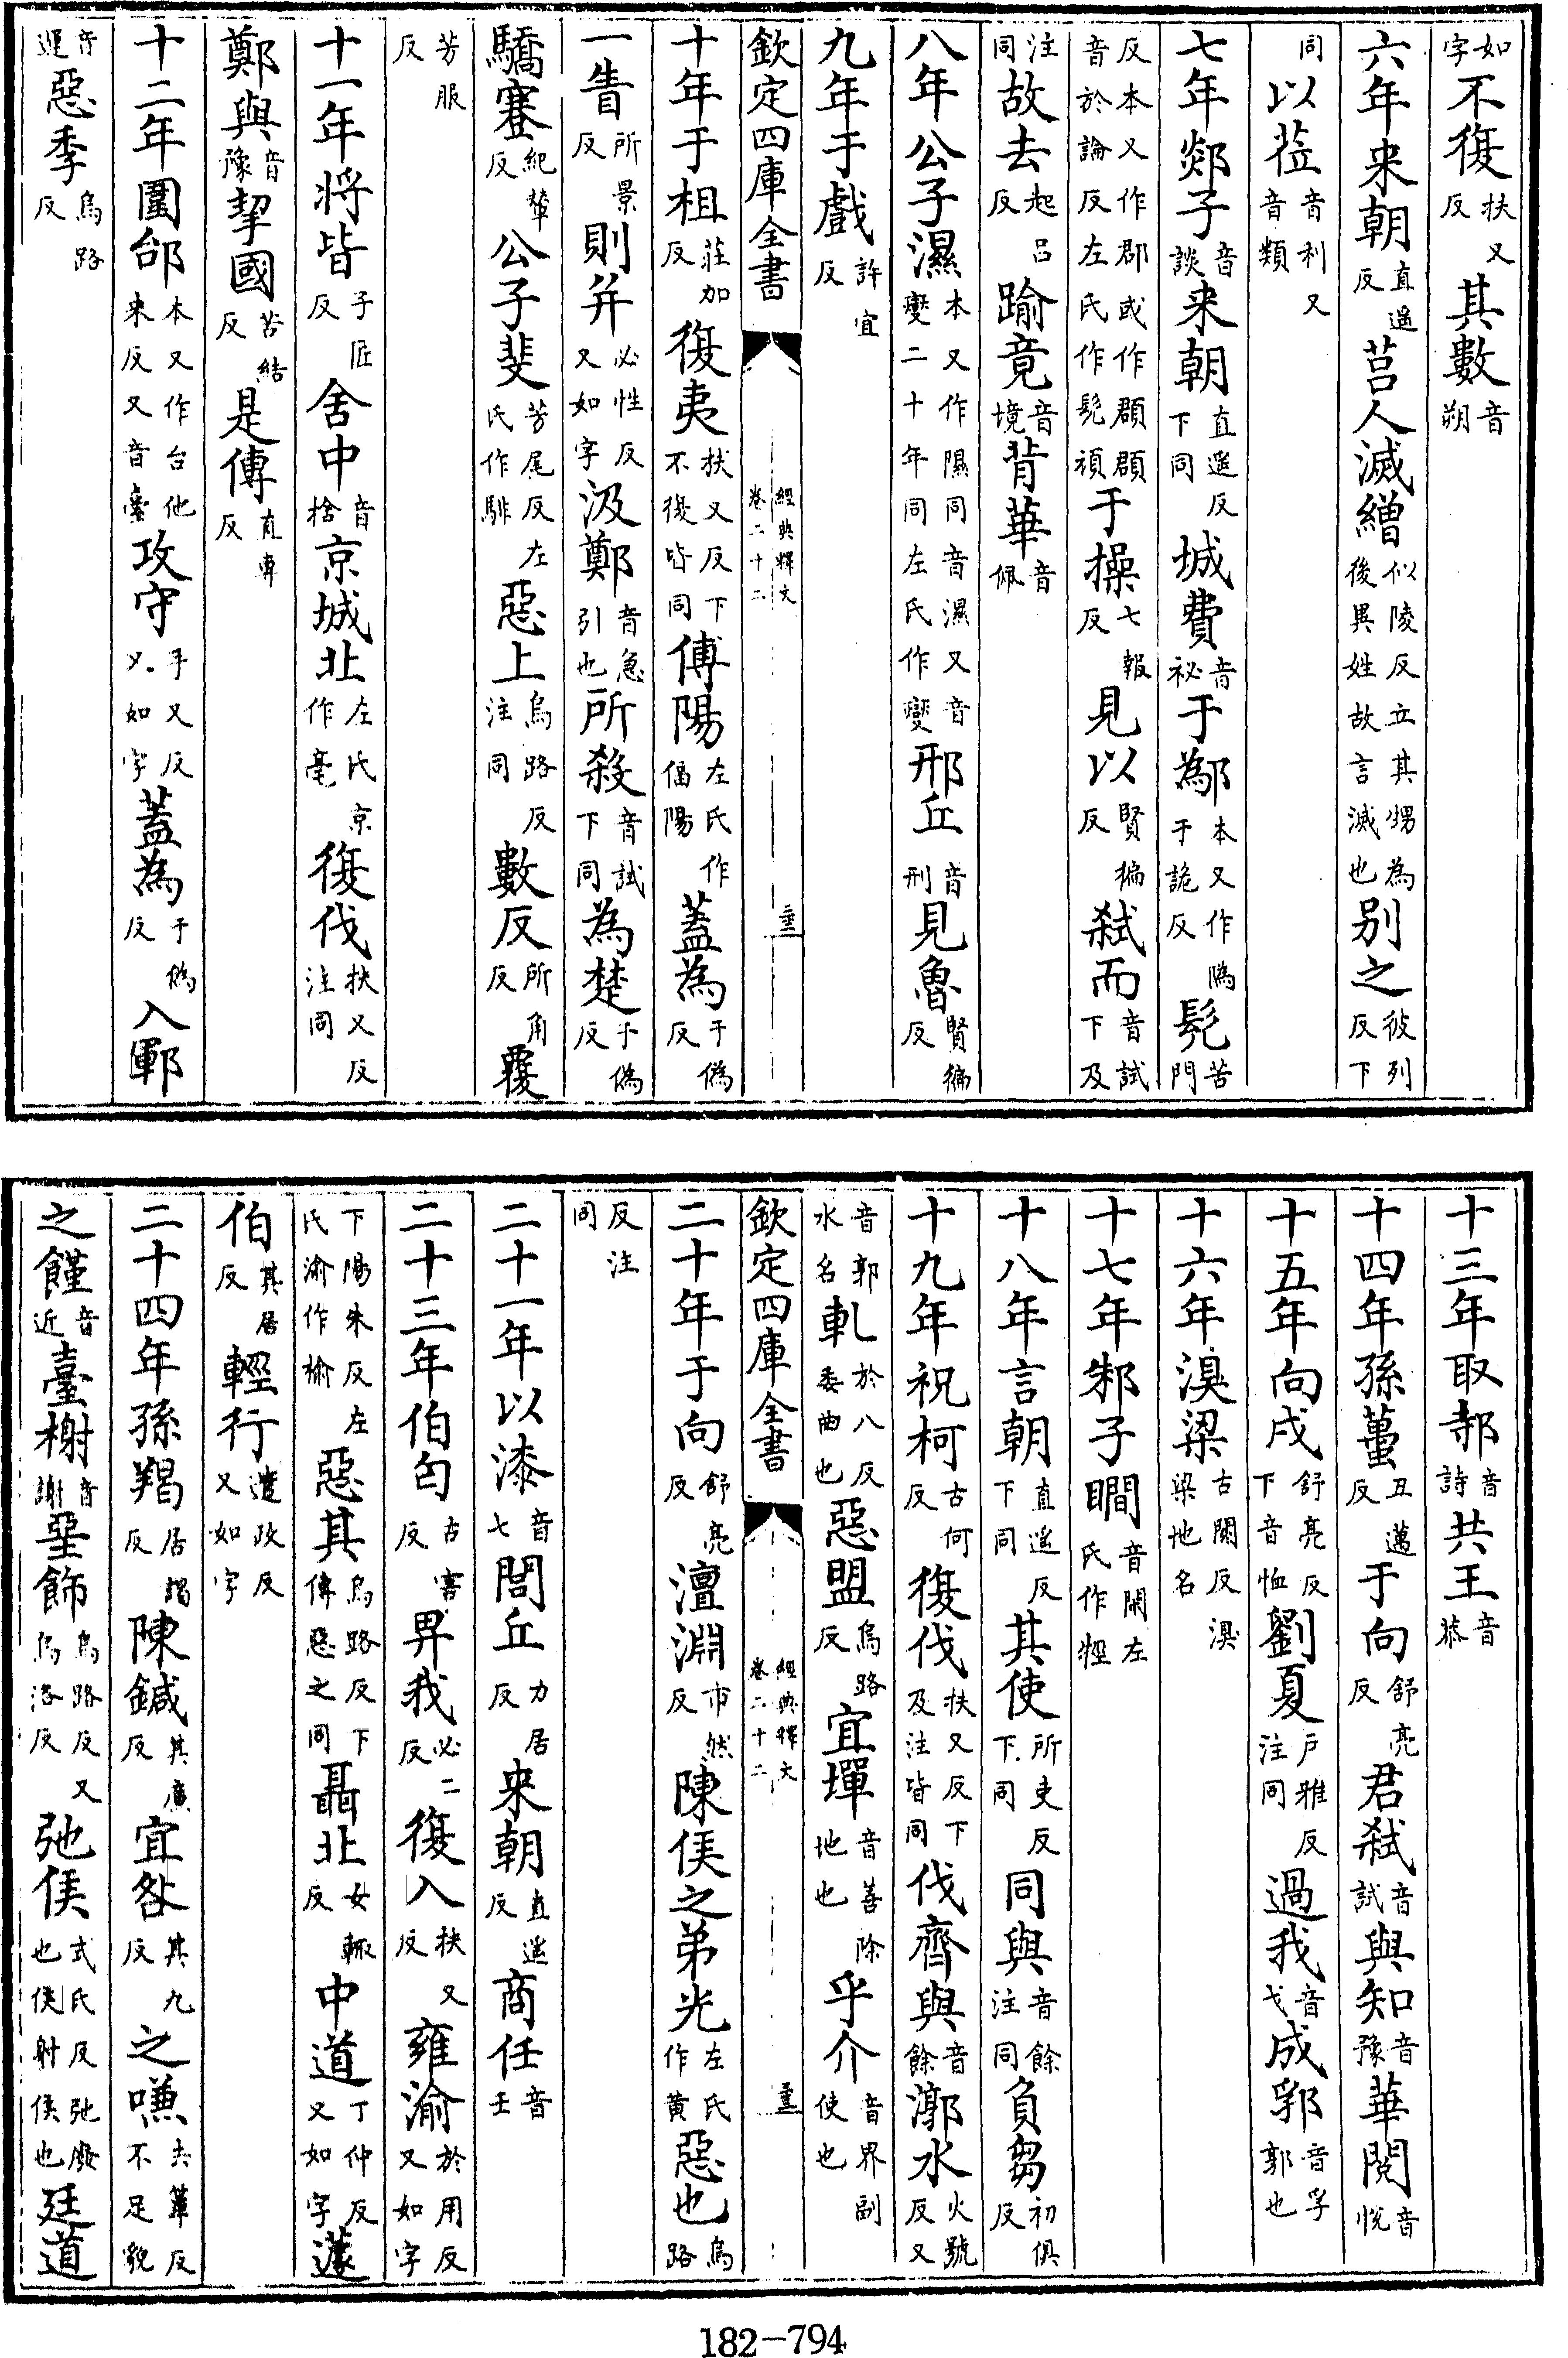 如字不復扶又反其數音朔
六年来朝直遥反莒人滅繒似陵反立其甥為後異姓故言滅也别之彼列反下
同以莅音利又音類
七年郯子音談来朝直遥反下同城費音祕于鄬本又作隔于詭反髡苦門
反本又作郡或作頵頵音於論反左氏作髡頑于操七報反見以賢徧反弑而音試下及
注同故去起吕反踰竟音境背華音佩
八年公子濕本又作隰同音濕又音變二十年同左氏作變邢丘音刑見魯賢徧反
九年于戲許宜反
欽定四庫全書 經典釋文卷二十二
十年于柤莊加反復夷扶又反下不復皆同傅陽左氏作偪陽蓋為于偽反
一眚所景反則并必性反又如字汲鄭音急引也所殺音試下同為楚于偽反
驕蹇紀輦反公子斐芳尾反左氏作騑惡上烏路反注同數反所角反覆
芳服反
十一年將皆子匠反舍中音捨京城北左氏京作亳復伐扶又反注同
鄭與音豫挈國苦結反是傳直專反
十二年圍邰本又作台他来反又音臺攻守手又反又如字蓋為于偽反入鄆
音運惡季烏路反
十三年取邿音詩共王音恭
十四年孫蠆丑邁反于向舒亮反君弑音試與知音豫華閱音悅
十五年向戌舒亮反下音恤劉夏户雅反注同過我音戈成郛音孚郭也
十六年溴梁古闃反溴梁地名
十七年邾子瞷音閑左氏作牼
十八年言朝直遥反下同其使所吏反下同同與音餘注同負芻初俱反
十九年祝柯古何反復伐扶又反下及注皆同伐齊與音餘漷水火號反又
音郭水名軋於八反委曲也惡盟烏路反宜墠音善除地也乎介音界副使也
欽定四庫全書 經典釋文卷二十二
二十年于向舒亮反澶淵市然反陳侯之弟光左氏作黄惡也烏路
反注同
二十一年以漆音七閭丘力居反来朝直遥反商任音壬
二十三年伯匄古害反畀我必二反復入扶又反雍渝於用反又如字
下陽朱反左氏渝作榆惡其烏路反下傳惡之同聶北女輒反中道丁仲反又如字蘧
伯其居反輕行遣政反又如字
二十四年孫羯居謁反陳鍼其廉反宜咎其九反之嗛去簟反不足貌
之饉音近臺榭音謝堊飾烏路反又烏洛反弛侯式氏反弛廢也侯射侯也廷道
182-794